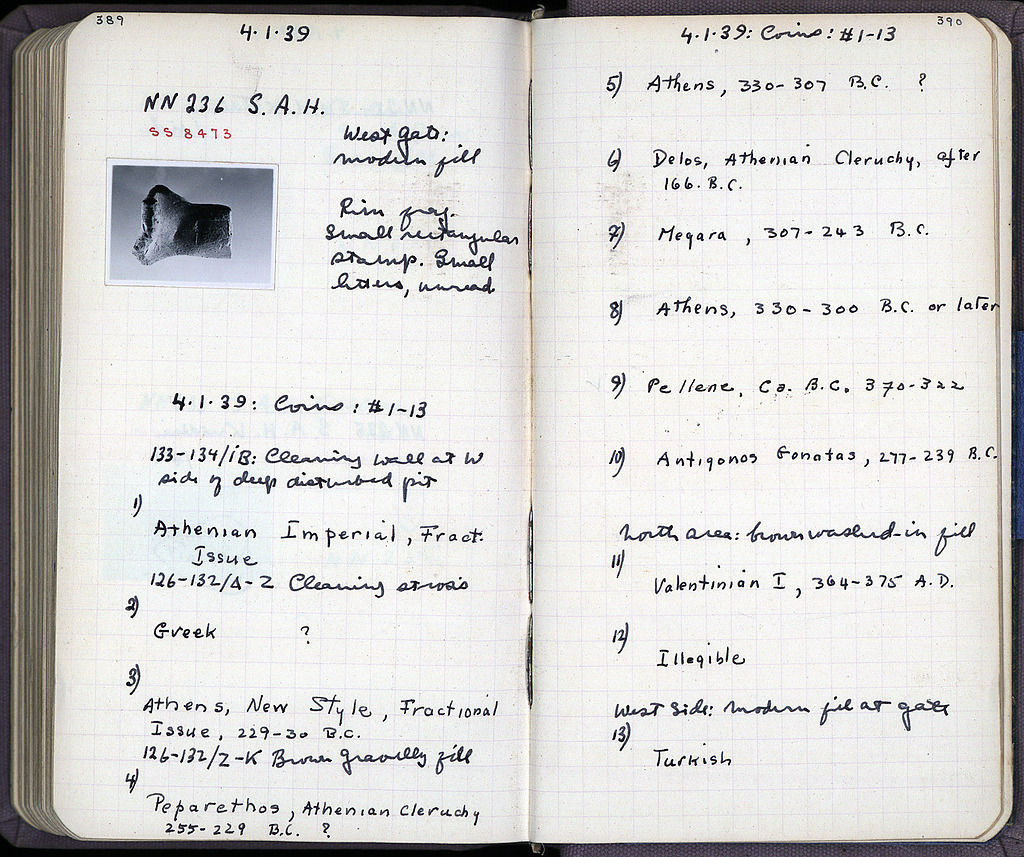 389
4.1.39
NN 236 S.A.H.
SS 8473
West gate:
modern fill
Rim frag.
Small rectangular
stamp. Small
letters, unread
4.1.39: Coins: #1-13
133-134/IB: Cleaning wall at W
side of deep disturbed pit
1)
Athenian Imperial, Fract.
Issue
126-132/Δ-Z Cleaning strosis
2)
Greek ?
3)
Athens, New Style, Fractional
Issue, 229-30 B.C.
126-132/Z-K Brown gravelly fill
4)
Peparethos, Athenian Cleruchy
255-229 B.C. ?
390
4.1.39: Coins: #1-13
5) Athens, 330-307 B.C. ?
6) Delos, Athenian Cleruchy, after
166. B.C.
7) Megara, 307-243 B.C.
8) Athens, 330-300 B.C. or later
9) Pellene, Ca. B.C. 370-322
10) Antigonos Gonatas, 277-239 B.C.
North area: brown washed-in fill
11)
Valentinian I, 364-375 A.D.
12)
Illegible
West Side: modern fill at gate
13)
Turkish